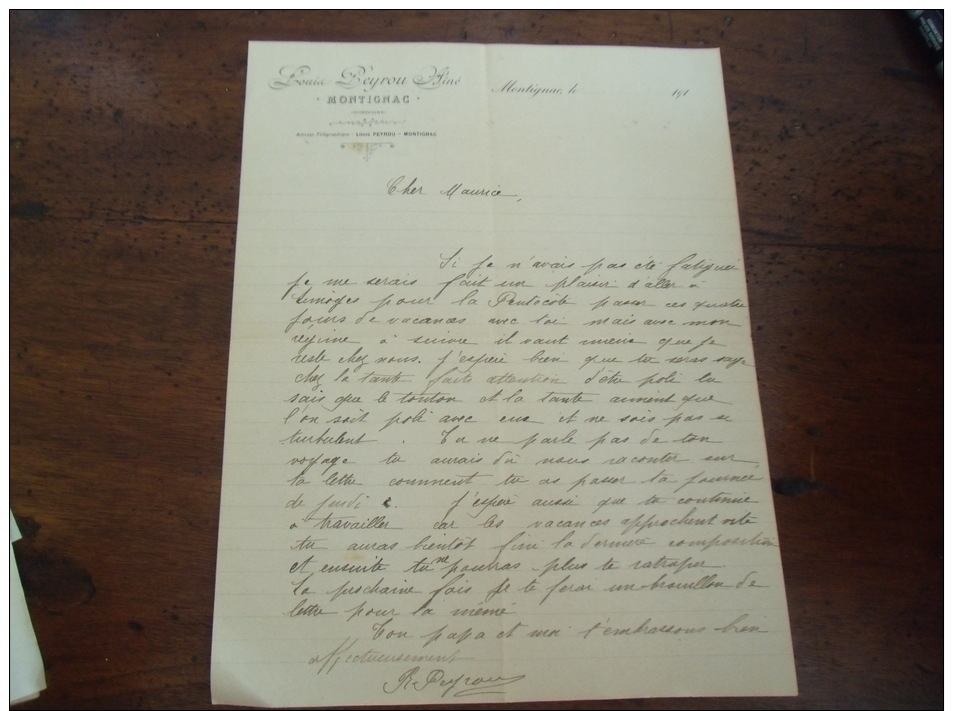 Louis Peyrou Aîné
MONTIGNAC
(DORDOGNE)
Adresse Télégraphique : LOUIS PEYROU - MONTIGNAC
Montignac, le 191
Cher Maurice,
Si je n'avais pas été fatiguée
je me serais fait un plaisir d'aller à
Limoges pour la Pentecôte passer ces quatre
jours de vacances avec toi mais avec mon
régime à suivre il vaut mieux que je
reste chez nous. J'espère bien que tu seras sage
chez la tante faits attention d'être poli tu
sais que le tonton et la tante aiment que
l'on soit poli avec eux et ne sois pas si
turbulent. Tu ne parle pas de ton
voyage tu aurais dû nous raconter sur
ta lettre comment tu as passer ta journée
de jeudi. J'espère aussi que tu continue
à travailler car les vacances approchent vite
tu auras bientôt fini la dernière composition
et ensuite tu ne pourras plus te ratraper.
La prochaine fois je te ferai un brouillon de
lettre pour la mémé
Ton papa et moi t'embrassons bien
affectueusement
R. Peyrou